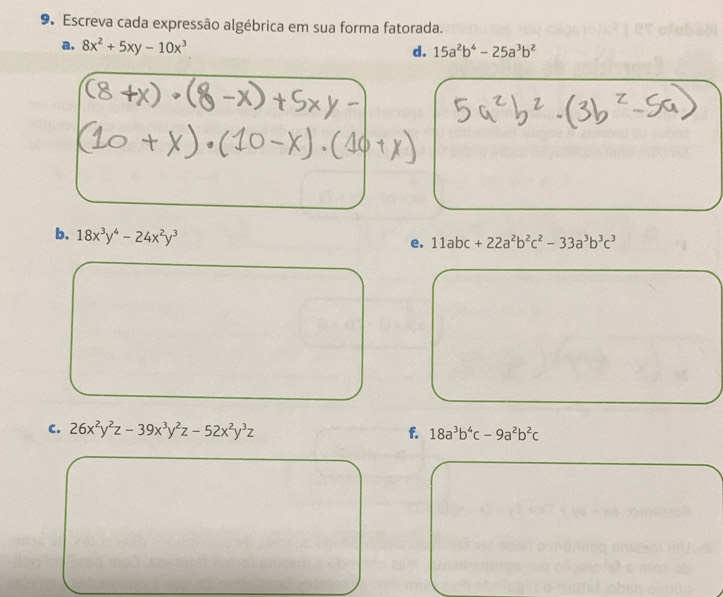 9. Escreva cada expressão algébrica em sua forma fatorada.
a. 8x² + 5xy – 10x³
(8 + x) · (8 – x) + 5xy –
(10 + x) · (10 – x) · (10 + x)
d. 15a²b⁴ – 25a³b²
5a²b² · (3b² – 5a)
b. 18x³y⁴ – 24x²y³
e. 11abc + 22a²b²c² – 33a³b³c³
c. 26x²y²z – 39x³y²z – 52x²y³z
f. 18a³b⁴c – 9a²b²c